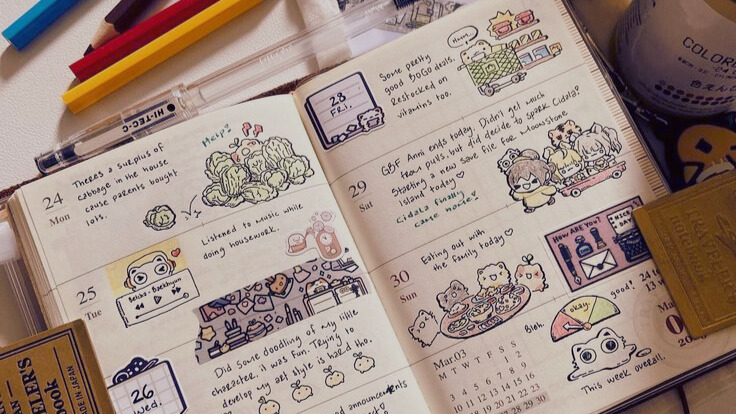 24
Mon
There's a surplus of
cabbage in the house
cause parents bought
lots.
Help!
25
Tue
Listened to music while
doing housework.
Baekhyun
26
Wed.
Did some doodling of my little
character. it was fun. Trying to
develop my art style is hard tho.
announcements
HI-TEC-C
28
FRI.
Some pretty
good BOGO deals.
Restocked on
vitamins too.
Hmm..
29
Sat
GBF Anni ends today. Didn't get much
from pulls, but did decide to spark Cidala!
Starting a new save file for Moonstone
Island today ♡
Cidala finally
came home!
30
Sun
Eating out with
the Family today ♡
HOW ARE YOU?
NICE
DAY
Mar.03
M T W T F S S
1 2
3 4 5 6 7 8 9
10 11 12 13 14 15 16
Bleh.
okay.
good!
This week overall.
COLORE
MADE IN JAPAN